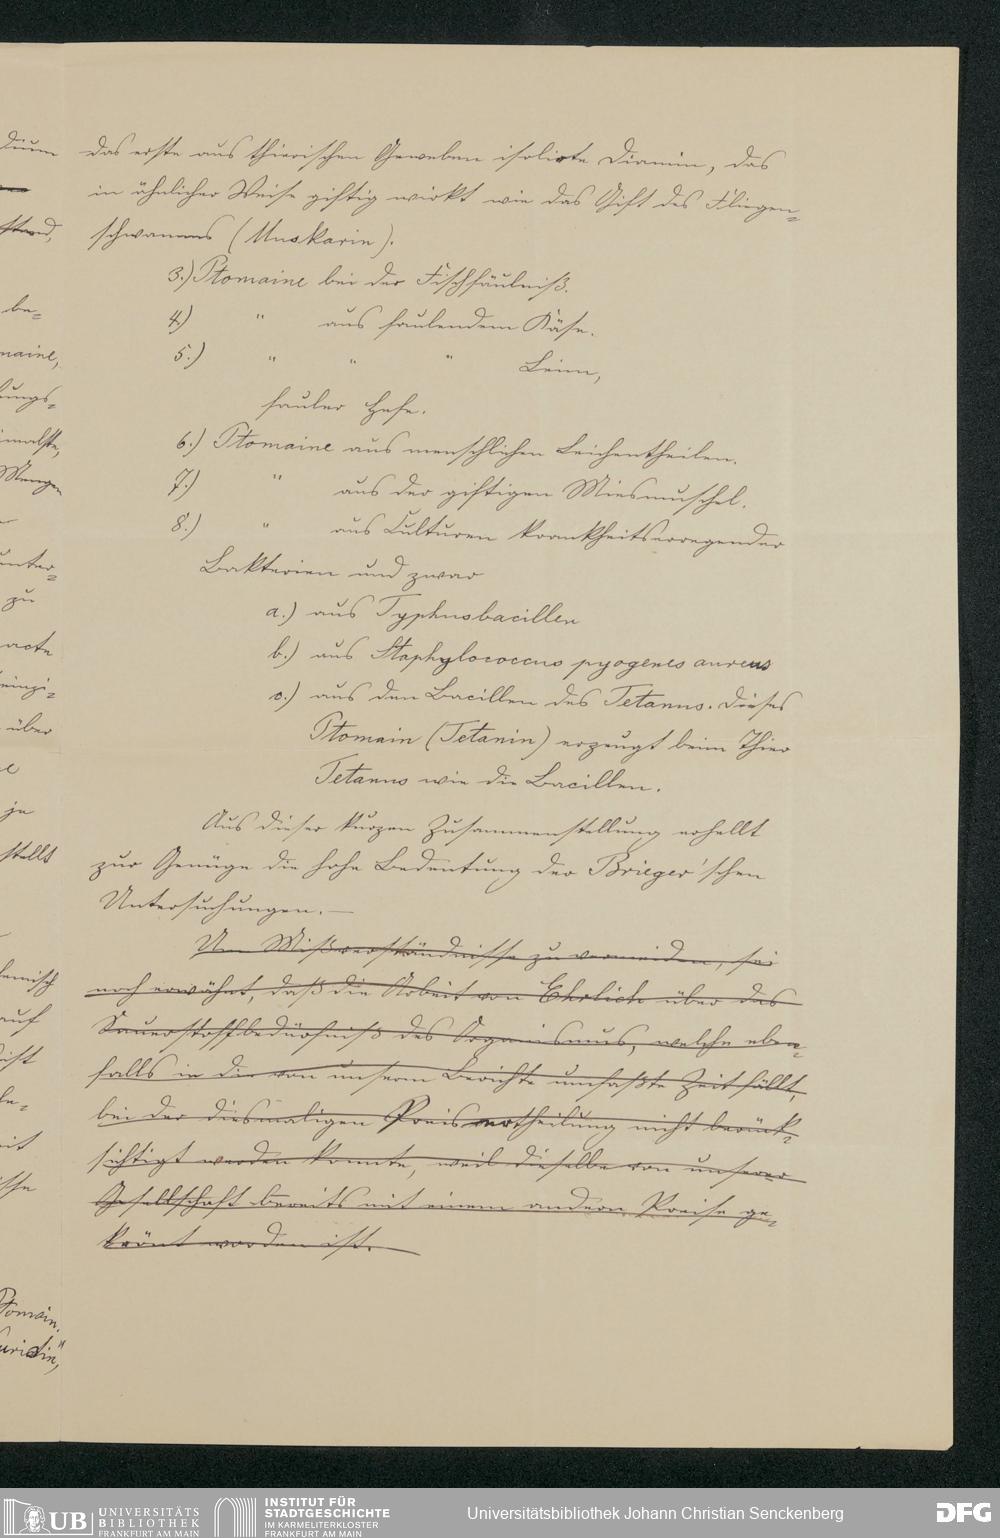 das erste aus thierischen Geweben isolirte Diamin, das
in ähnlicher Weise giftig wirkt wie das Gift des Fliegen-
schwamms (Muskarin).
3.) Ptomaine bei der Fischfäulniß.
4.) " aus faulendem Käse.
5.) " " " Leim,
fauler Hefe.
6.) Ptomaine aus menschlichen Leichentheilen.
7.) " aus der giftigen Miesmuschel.
8.) " aus Culturen krankheitserregender
Bakterien und zwar
a.) aus Typhusbacillen
b.) aus Staphylococcus pyogenes aureus
c.) aus den Bacillen des Tetanus. Dieses
Ptomain (Tetanin) erzeugt beim Thier
Tetanus wie die Bacillen.
Aus dieser kurzen Zusammenstellung erhellt
zur Genüge die hohe Bedeutung der Brieger'schen
Untersuchungen. —
Um Mißverständnisse zu vermeiden, sei
noch erwähnt, daß die Arbeit von Ehrlich über das
Sauerstoffbedürfniß des Organismus, welche eben-
falls in die von unserm Berichte umfaßte Zeit fällt,
bei der diesmaligen Preisvertheilung nicht berück-
sichtigt werden konnte, weil dieselbe von unserer
Gesellschaft bereits mit einem andern Preise ge-
krönt worden ist.
dium
stand,
be-
maine,
lungs-
Mengen
unter-
zu
acte
über
je
stellt
auf
Ptomain.
uridin"
UB UNIVERSITÄTS
BIBLIOTHEK
FRANKFURT AM MAIN
INSTITUT FÜR
STADTGESCHICHTE
IM KARMELITERKLOSTER
FRANKFURT AM MAIN
Universitätsbibliothek Johann Christian Senckenberg
DFG